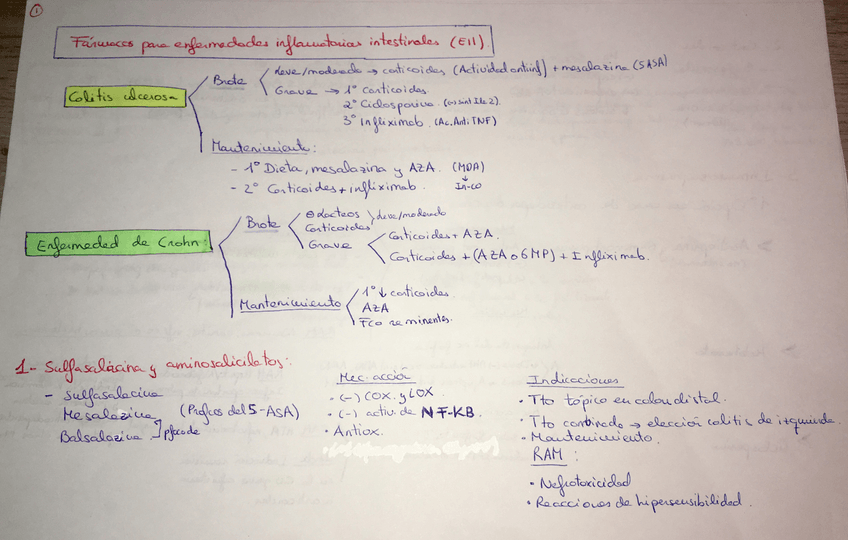 1
Fármacos para enfermedades inflamatorias intestinales (EII).
Colitis ulcerosa
Brote
Leve/moderado → corticoides (Actividad antiinf) + mesalazina (5ASA)
Grave → 1º Corticoides
2º Ciclosporina (
3º Infliximab. (Ac. Anti TNF)
Mantenimiento:
- 1º Dieta, mesalazina y AZA. (MDA)
- 2º Corticoides + infliximab. In-co
Enfermedad de Crohn:
Brote
⊖ Lácteos
Corticoides
leve/moderado
Grave
Corticoides + AZA.
Corticoides + (AZA o 6MP) + Infliximab.
Mantenimiento
1º ↓ corticoides.
AZA
1- Sulfasalacina y aminosalicilatos:
- Sulfasalacina
Mesalazina (Profcos del 5-ASA)
Balsalazina
Mec. acción
· (-) COX y LOX
· (-) activ. de NF-KB.
· Antiox.
Indicaciones
· Tto tópico en colon distal.
· Tto combinado → elección colitis de izquierda.
· Mantenimiento.
RAM:
· Nefrotoxicidad
· Reacciones de hipersensibilidad.